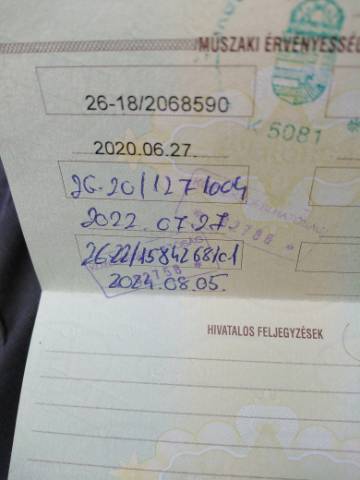 MŰSZAKI ÉRVÉNYESSÉG
26-18/2068590
K 5081
2020.06.27.
2022.07.27
26.22/1584268/01
22758
2024.08.05.
HIVATALOS FELJEGYZÉSEK